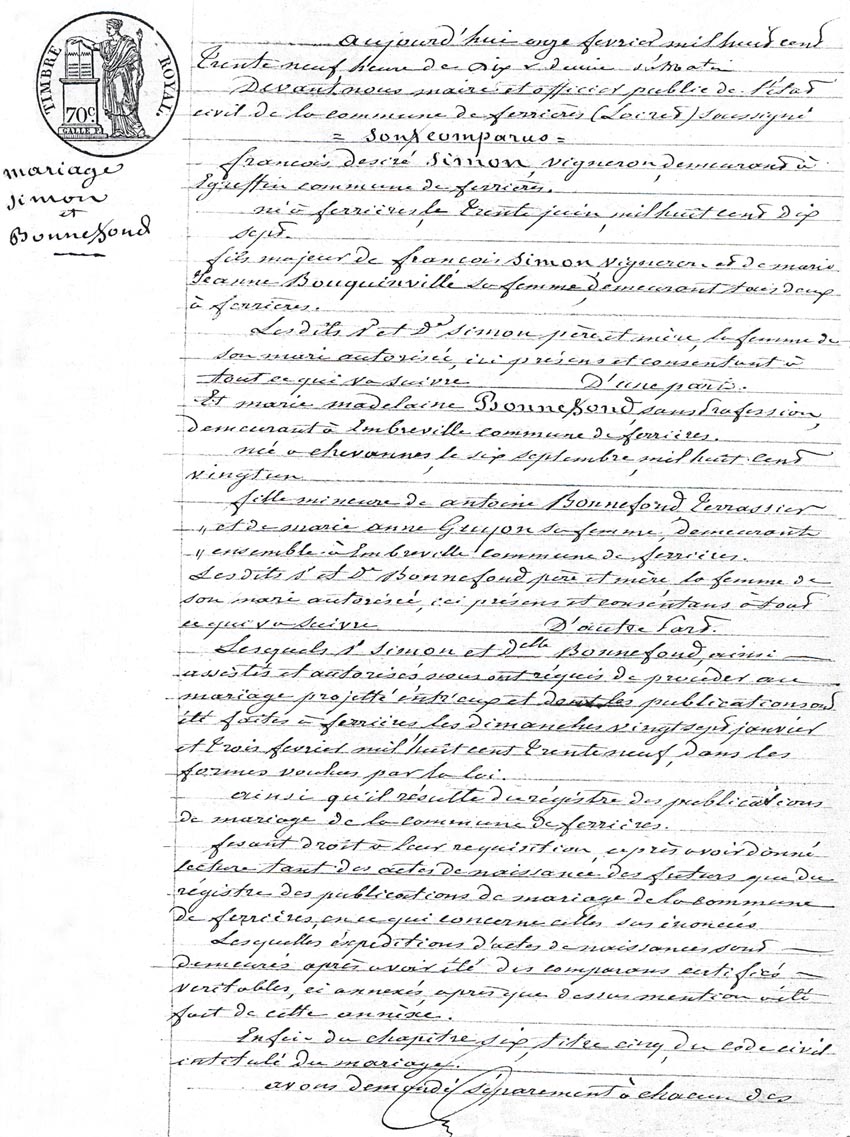 TIMBRE ROYAL.
70c.
GALLE F.
mariage
Simon
et
Bonnefond
aujourd'hui onze fevrier mil huit cent
Trente neuf heure de dix & demie du Matin
Devant nous maire et officier public de l'état
civil de la commune de ferrières (Loiret) soussigné
= Sont comparus =
françois desiré Simon, vigneron, demeurant à
Egreffin commune de ferrières.
né à ferrières, le Trente juin, mil huit cent dix
sept.
fils majeur de françois Simon vigneron et de marie
Jeanne Bouquinville sa femme, demeurant tous deux
à ferrières.
Les dits Sr et De Simon père et mère, la femme de
son mari autorisée, ici présens et consentant à
tout ce qui va suivre D'une part.
Et marie madelaine Bonnefond, sans Profession,
demeurant à Embreville commune de ferrières.
née à chevannes, le six septembre, mil huit cent
vingt un
fille mineure de antoine Bonnefond Terrassier
„ et de marie anne Guyon sa femme, demeurant
„ ensemble à Embreville commune de ferrières.
Les dits Sr et De Bonnefond père et mère, la femme de
son mari autorisée, ici présens et consentans à tout
ce qui va suivre D'autre Part.
Lesquels Sr Simon et Delle Bonnefond, ainsi
assistés et autorisés nous ont réquis de procéder au
mariage projetté entr'eux et dont les publications ont
été faites à ferrières les dimanches vingt sept janvier
et Trois fevrier mil huit cent Trente neuf, dans les
formes voulues par la loi.
ainsi qu'il résulte du régistre des publications
de mariage de la commune de ferrières.
fesant droit à leur requisition, après avoir donné
lecture tant des actes de naissance des futurs que du
régistre des publications de mariage de la commune
de ferrières, en ce qui concerne celles sus énoncés
Lesquelles éxpéditions d'actes de naissances sont
demeurés après avoir été des comparans certifiés
veritables, ci annexés, après que dessus mention a été
fait de cette annéxe.
Enfin du chapitre six, titre cinq, du code civil
intitulé du mariage.
avons demandé séparement à chacun des